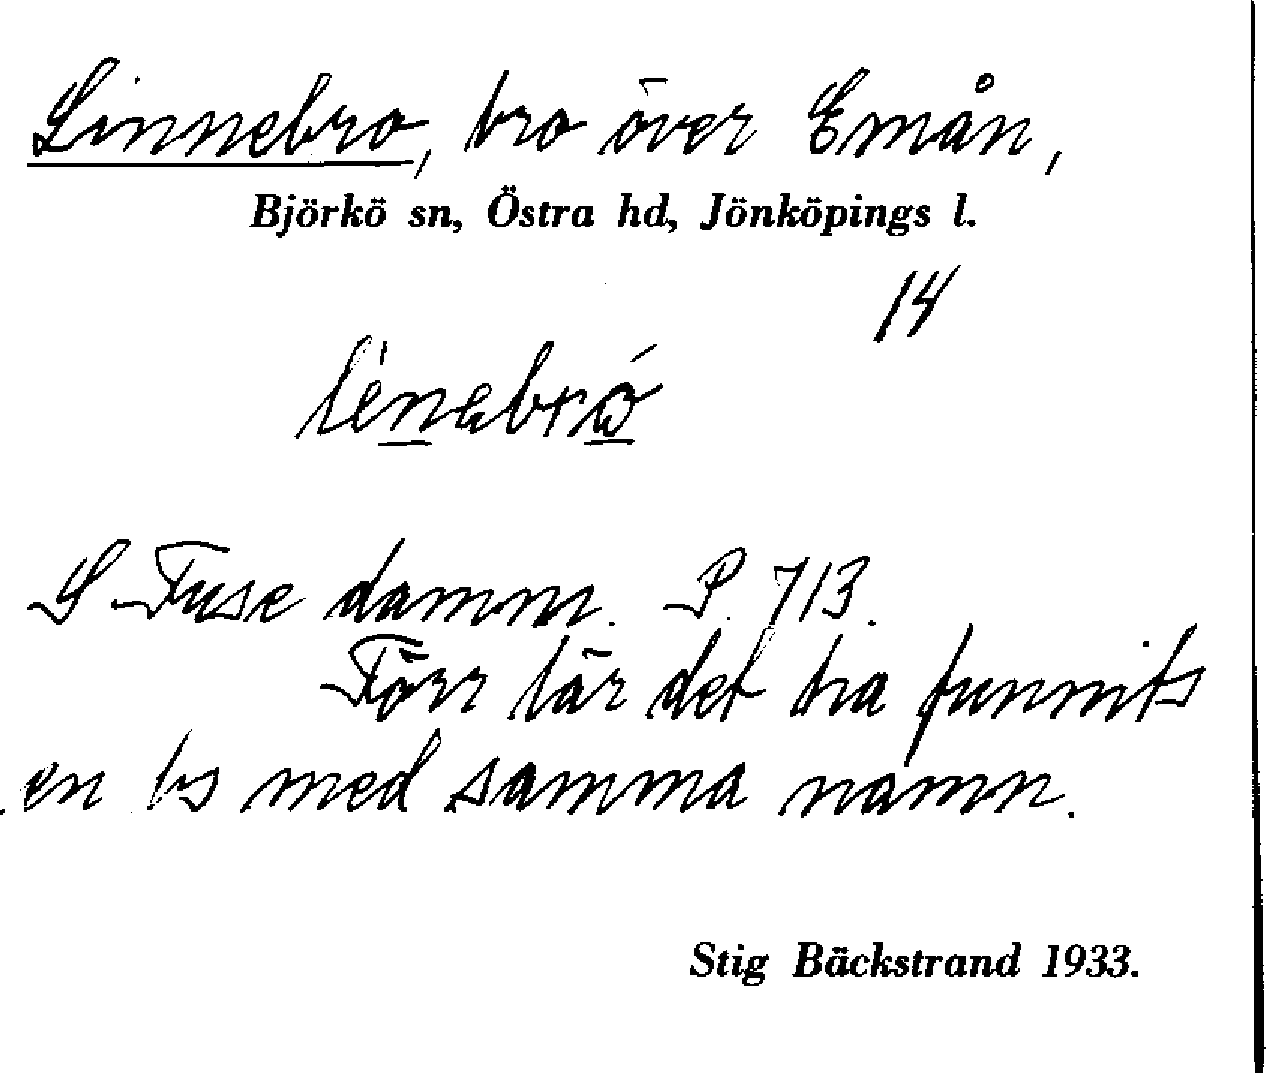 Linnebro, bro över Emån,
Björkö sn, Östra hd, Jönköpings l.
14
S Fuse damm. P. 713.
Förr lär det ha funnits
en bs med samma namn.
Stig Bäckstrand 1933.